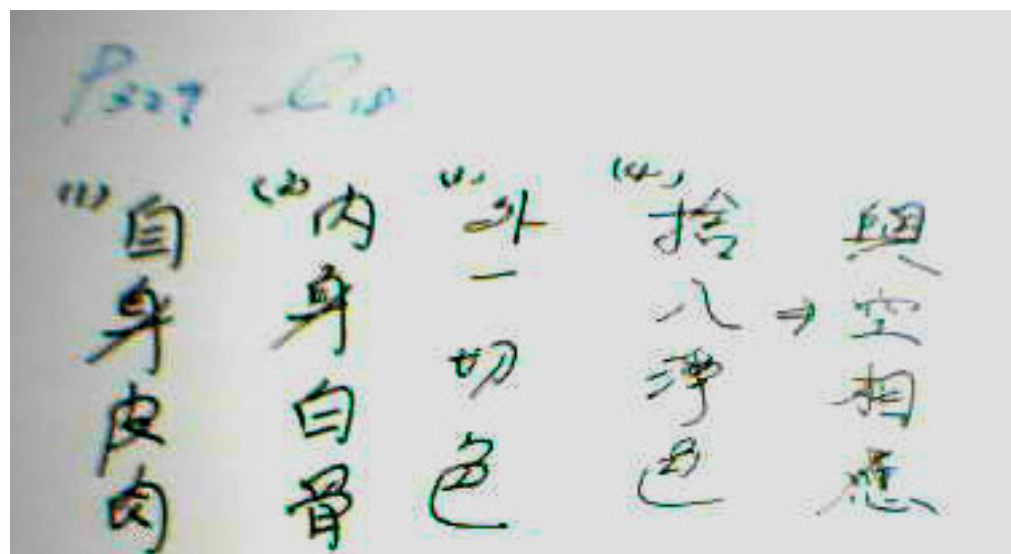 P327 C18
(1) 自身皮肉
(2) 內身白骨
(3) 外一切色
(4) 捨八淨色
→ 與空相應